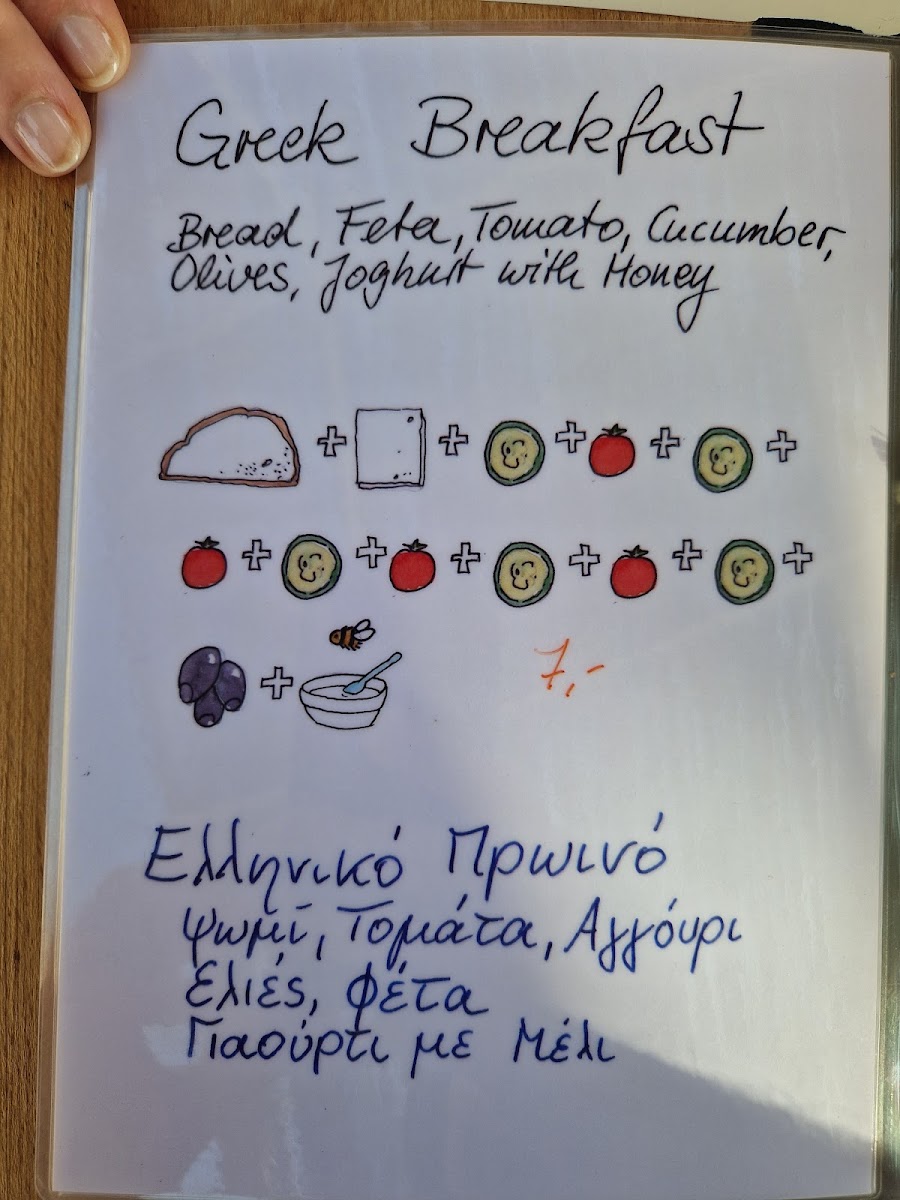 Greek Breakfast
Bread, Feta, Tomato, Cucumber,
Olives, Joghurt with Honey
7,-
Ελληνικό Πρωινό
Ψωμί, Τομάτα, Αγγόυρι
Ελιές, Φέτα
Γιαούρτι με Μέλι